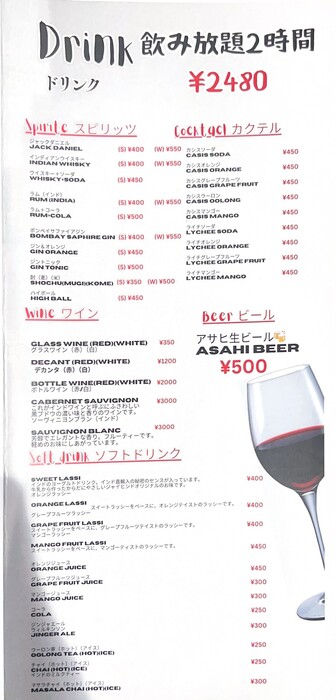 Drink 飲み放題2時間
ドリンク ¥2480
Spirite スピリッツ
ジャックダニエル
JACK DANIEL (S) ¥400 (W) ¥550
インディアンウイスキー
INDIAN WHISKY (S) ¥400 (W) ¥550
ウイスキーソーダ
WHISKY+SODA (S) ¥450
ラム (インド)
RUM(INDIA) (S) ¥400
ラム+コーラ
RUM+COLA (S) ¥500
ボンベイサファイアジン
BOMBAY SAPHIRE GIN (S) ¥400 (W) ¥550
ジン&オレンジ
GIN ORANGE (S) ¥450
ジントニック
GIN TONIC (S) ¥500
SHOCHU(MUGI)(KOME) (S) ¥350 (W) ¥500
ハイボール
HIGH BALL (S) ¥450
Cocktael カクテル
カシスソーダ
CASIS SODA ¥450
カシスオレンジ
CASIS ORANGE ¥450
カシスグレープフルーツ
CASIS GRAPE FRUIT ¥450
カシスウーロン
CASIS OOLONG ¥450
カシスマンゴー
CASIS MANGO ¥450
ライチソーダ
LYCHEE SODA ¥450
ライチオレンジ
LYCHEE ORANGE ¥450
ライチグレープフルーツ
LYCHEE GRAPE FRUIT ¥450
ライチマンゴー
LYCHEE MANGO ¥450
Wine ワイン
GLASS WINE (RED)(WHITE) ¥350
グラスワイン (赤) (白)
DECANT (RED)(WHITE) ¥1200
デカンタ (赤) (白)
BOTTLE WINE(RED)(WHITE) ¥2000
ボトルワイン (赤/白)
CABERNET SAUVIGNON ¥3000
これがインドワインと呼ぶにふさわしい
黒ブドウの濃い味と香りのワインです。
ソーヴィニヨンブラン (インド)
SAUVIGNON BLANC ¥3000
芳醇でエレガントな香り、フルーティーです。
軽めのお味にしあがっています。
Beer ビール
アサヒ生ビール🍻
ASAHI BEER
¥500
Soft drink ソフトドリンク
SWEET LASSI ¥400
インドのヨーグルトドリンク。
オレンジラッシー
ORANGE LASSI ¥400
スイートラッシーをベースに、オレンジテイストのラッシーです。
グレープフルーツラッシー
GRAPE FRUIT LASSI ¥400
スイートラッシーをベースに、グレープフルーツテイストのラッシーです。
マンゴーラッシー
MANGO FRUIT LASSI ¥450
スイートラッシーをベースに、マンゴーテイストのラッシーです。
オレンジジュース
ORANGE JUICE ¥450
グレープフルーツジュース
GRAPE FRUIT JUICE ¥300
マンゴージュース
MANGO JUICE ¥300
コーラ
COLA ¥250
ジンジャエール
ウィルキンソン
JINGER ALE ¥300
ウーロン茶 (ホット) (アイス)
OOLONG TEA (HOT)(ICE) ¥250
チャイ (ホット) (アイス)
インドのミルクティー
CHAI (HOT)(ICE) ¥250
マサラチャイ (ホット) (アイス)
MASALA CHAI (HOT)(ICE) ¥300